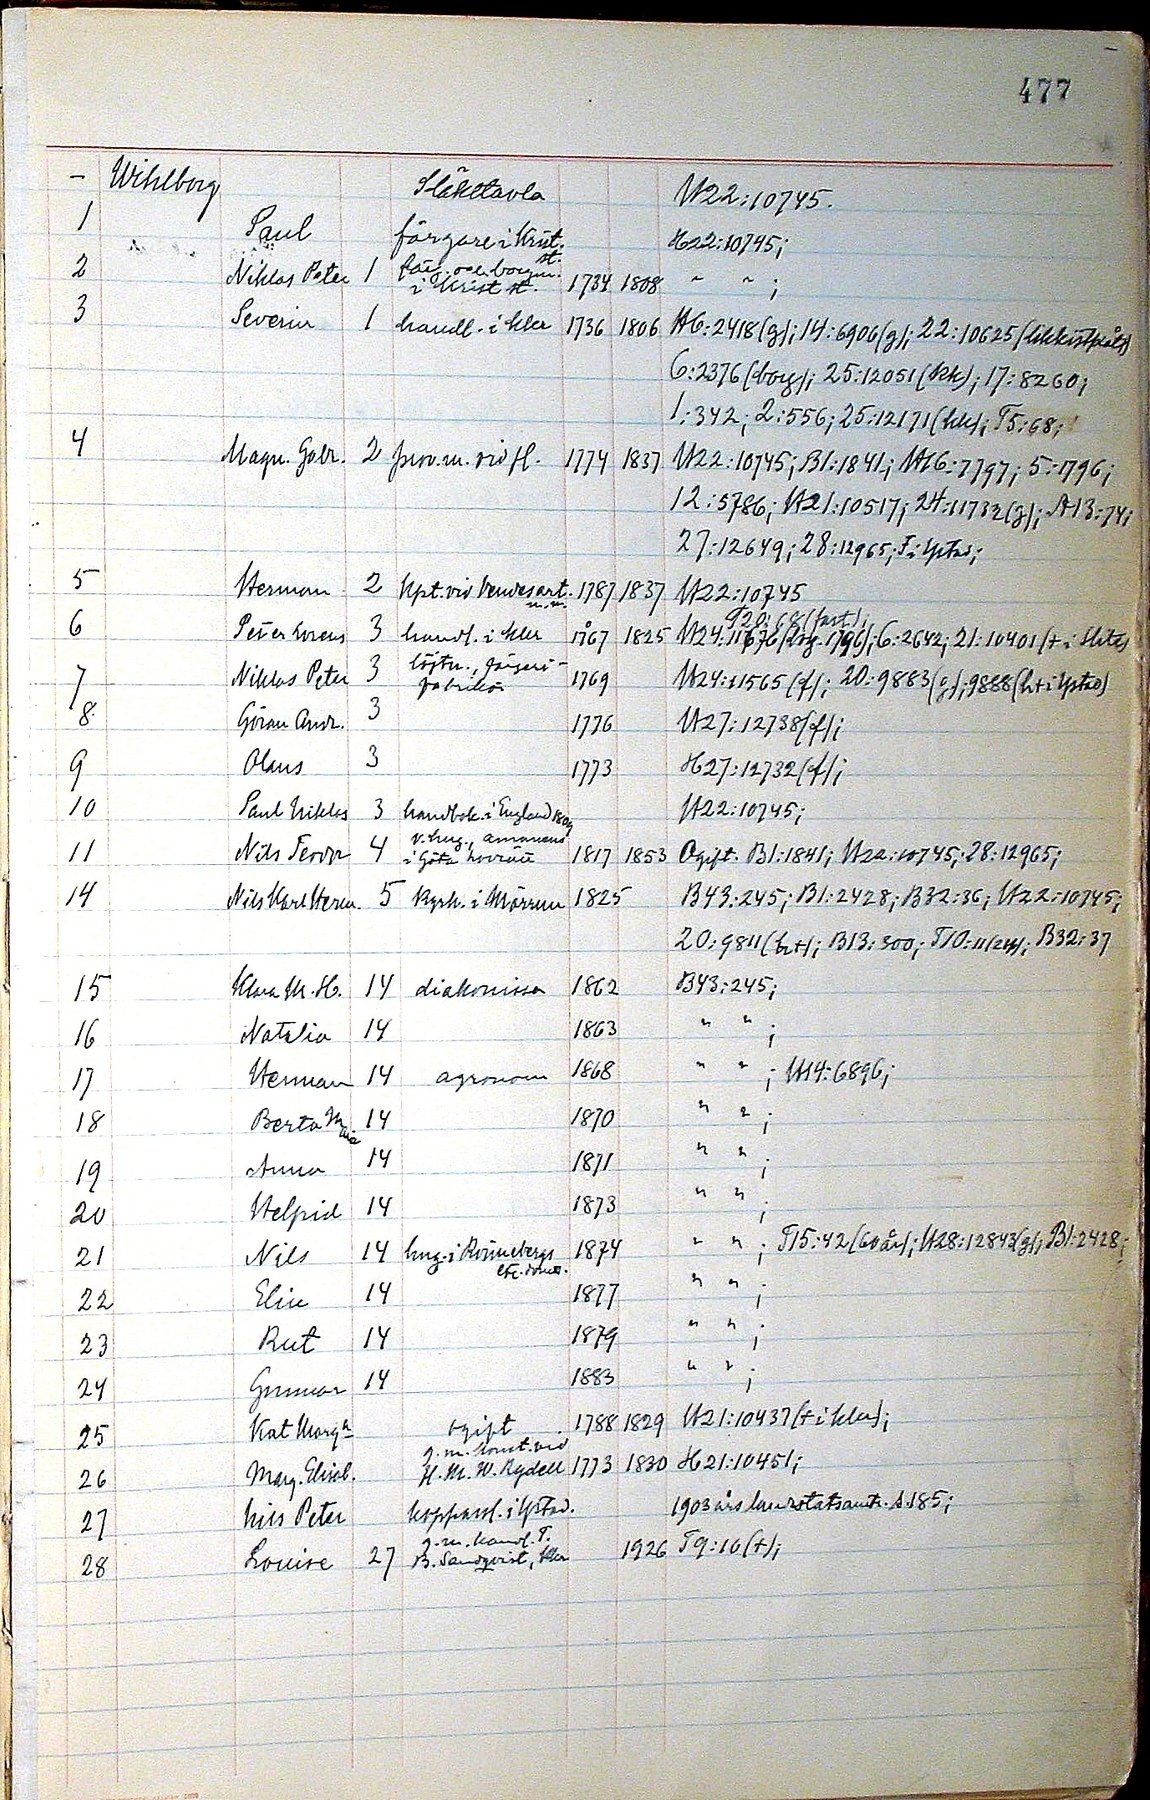 477
- Wihlborg Släkttavla H22:10745.
1 Paul färgare i Krist. st. H22:10745;
2 Niklas Peter 1 färg. och borgm. i Krist st. 1734 1808 " " ;
3 Severin 1 handl. i Khr 1736 1806 H6:2418(g); 14:6906(g); 22:10625
6:2376(borg); 25:12051(kk); 17:8260;
1:342; 2:556; 25:12171(kk); T5:68;
4 Magn. Gabr. 2 prov.m. vid fl. 1774 1837 H22:10745; B1:1841; H16:7797; 5:1796;
12:5786; H21:10517; 24:11732(g); A13:74;
27:12649; 28:12965; F i Ystad;
5 Herman 2 Kpt. vid Wendes art. m.m. 1787 1837 H22:10745
T20:68(fast.);
6 Peter Lorens 3 handl. i Khr 1767 1825 H24:11676(borg. 1796); 6:2642; 21:10401(+ i
7 Niklas Peter 3 löjtn., färgeri-fabrikör 1769 H24:11565(f); 20:9883(g); 9888(h+i Ystad)
8 Göran Andr. 3 1776 H27:12738(f);
9 Olaus 3 1773 H27:12732(f);
10 Paul Niklas 3 handbok. i England 1809 H22:10745;
11 Nils Feodor 4 v. hng., amanuens i Göta hovrätt 1817 1853 Ogift. B1:1841; H22:10745; 28:12965;
14 Nils Karl Herm. 5 Kyrk. i Mörrum 1825 B43:245; B1:2428; B32:36; H22:10745;
20:9811(h+); B13:300; T10:11; B32:37
15 Klara M. H. 14 diakonissa 1862 B43:245;
16 Natalia 14 1863 " " ;
17 Herman 14 agronom 1868 " " ; H14:6896;
18 Berta Maria 14 1870 " " ;
19 Anna 14 1871 " " ;
20 Helfrid 14 1873 " " ;
21 Nils 14 hng. i Rönnebergs etc. doms. 1874 " " ; T15:42(60 år); H28:12843(g); B1:2428;
22 Elin 14 1877 " " ;
23 Rut 14 1879 " " ;
24 Gunnar 14 1883 " " ;
25 Kat Marga ogift 1788 1829 H21:10437(+ i Khr);
26 Marg. Elisab. g. m. konst. vid H. M. W. Rydell 1773 1830 H21:10451;
27 Nils Peter kopparsl. i Ystad. 1903 års s. 185;
28 Louise 27 g. m. handl. T. B. Sandqvist, Khr 1926 T9:16(+);